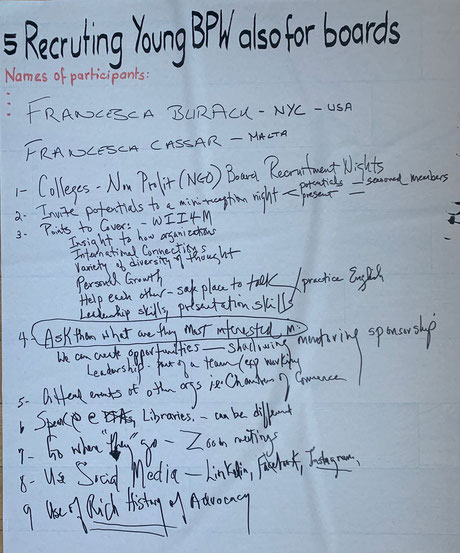 5 Recruting Young BPW also for boards
Names of participants:
FRANCESCA BURACK - NYC - USA
FRANCESCA CASSAR - MALTA
1- Colleges - Non Profit (NGO) Board Recruitment Nights
2- Invite potentials to a mini-reception night < potentials - seasoned members
present
3- Points to Cover: - WIIFM
Insight to how organizations
International Connections
Variety of diversity of thought
Personal Growth
Help each other - safe place to talk / practice English
Leadership skills, presentation skills
4. Ask them what are they most interested in.
We can create opportunities - Shadowing mentoring sponsorship
Leadership - part of a team (eg working
5- Attend events of other orgs ie: Chambers of Commerce
6 Speak @ Libraries. - can be different
7- Go where "they" go - Zoom meetings
8- Use Social Media - Linkedin, Facebook, Instagram,
9 Use of Rich History of Advocacy